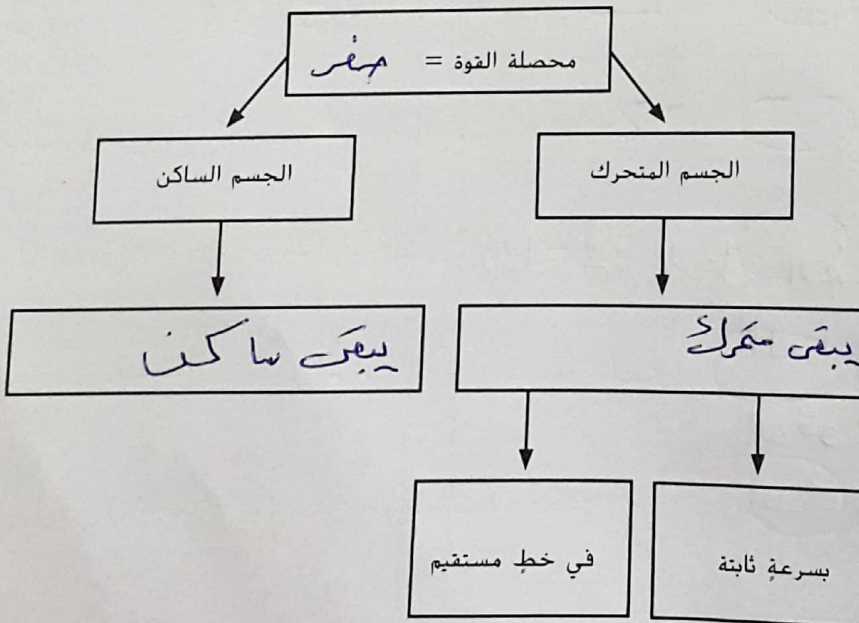 محصلة القوة = صفر
الجسم المتحرك
الجسم الساكن
يبقى متحرك
يبقى ساكن
بسرعةٍ ثابتة
في خطٍ مستقيم